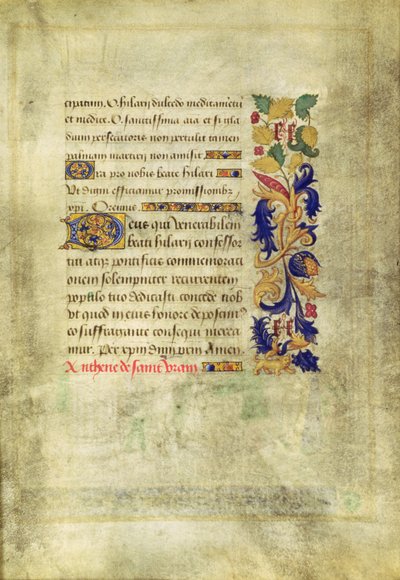 cipatium. O hilarii dulcedo medicamētū
et medice. O sanctissima aīa et si gla
dium persecutoris non pertulit tamen
palmam martirii non amisit.
Ora pro nobis beate hilari
Vt digni efficiamur promissionibȝ
xp̄i. Oremus.
Deus qui venerabilem
beati hilarii confessor
tui atqȝ pontificis commemorati
onem solempniter recurrentem
populo tuo dedicasti concede nob
vt quod in eius honore deposcim9
eo suffragante consequi merea
mur. Per xp̄m dn̄m nr̄m Amen.
Anthene de saint